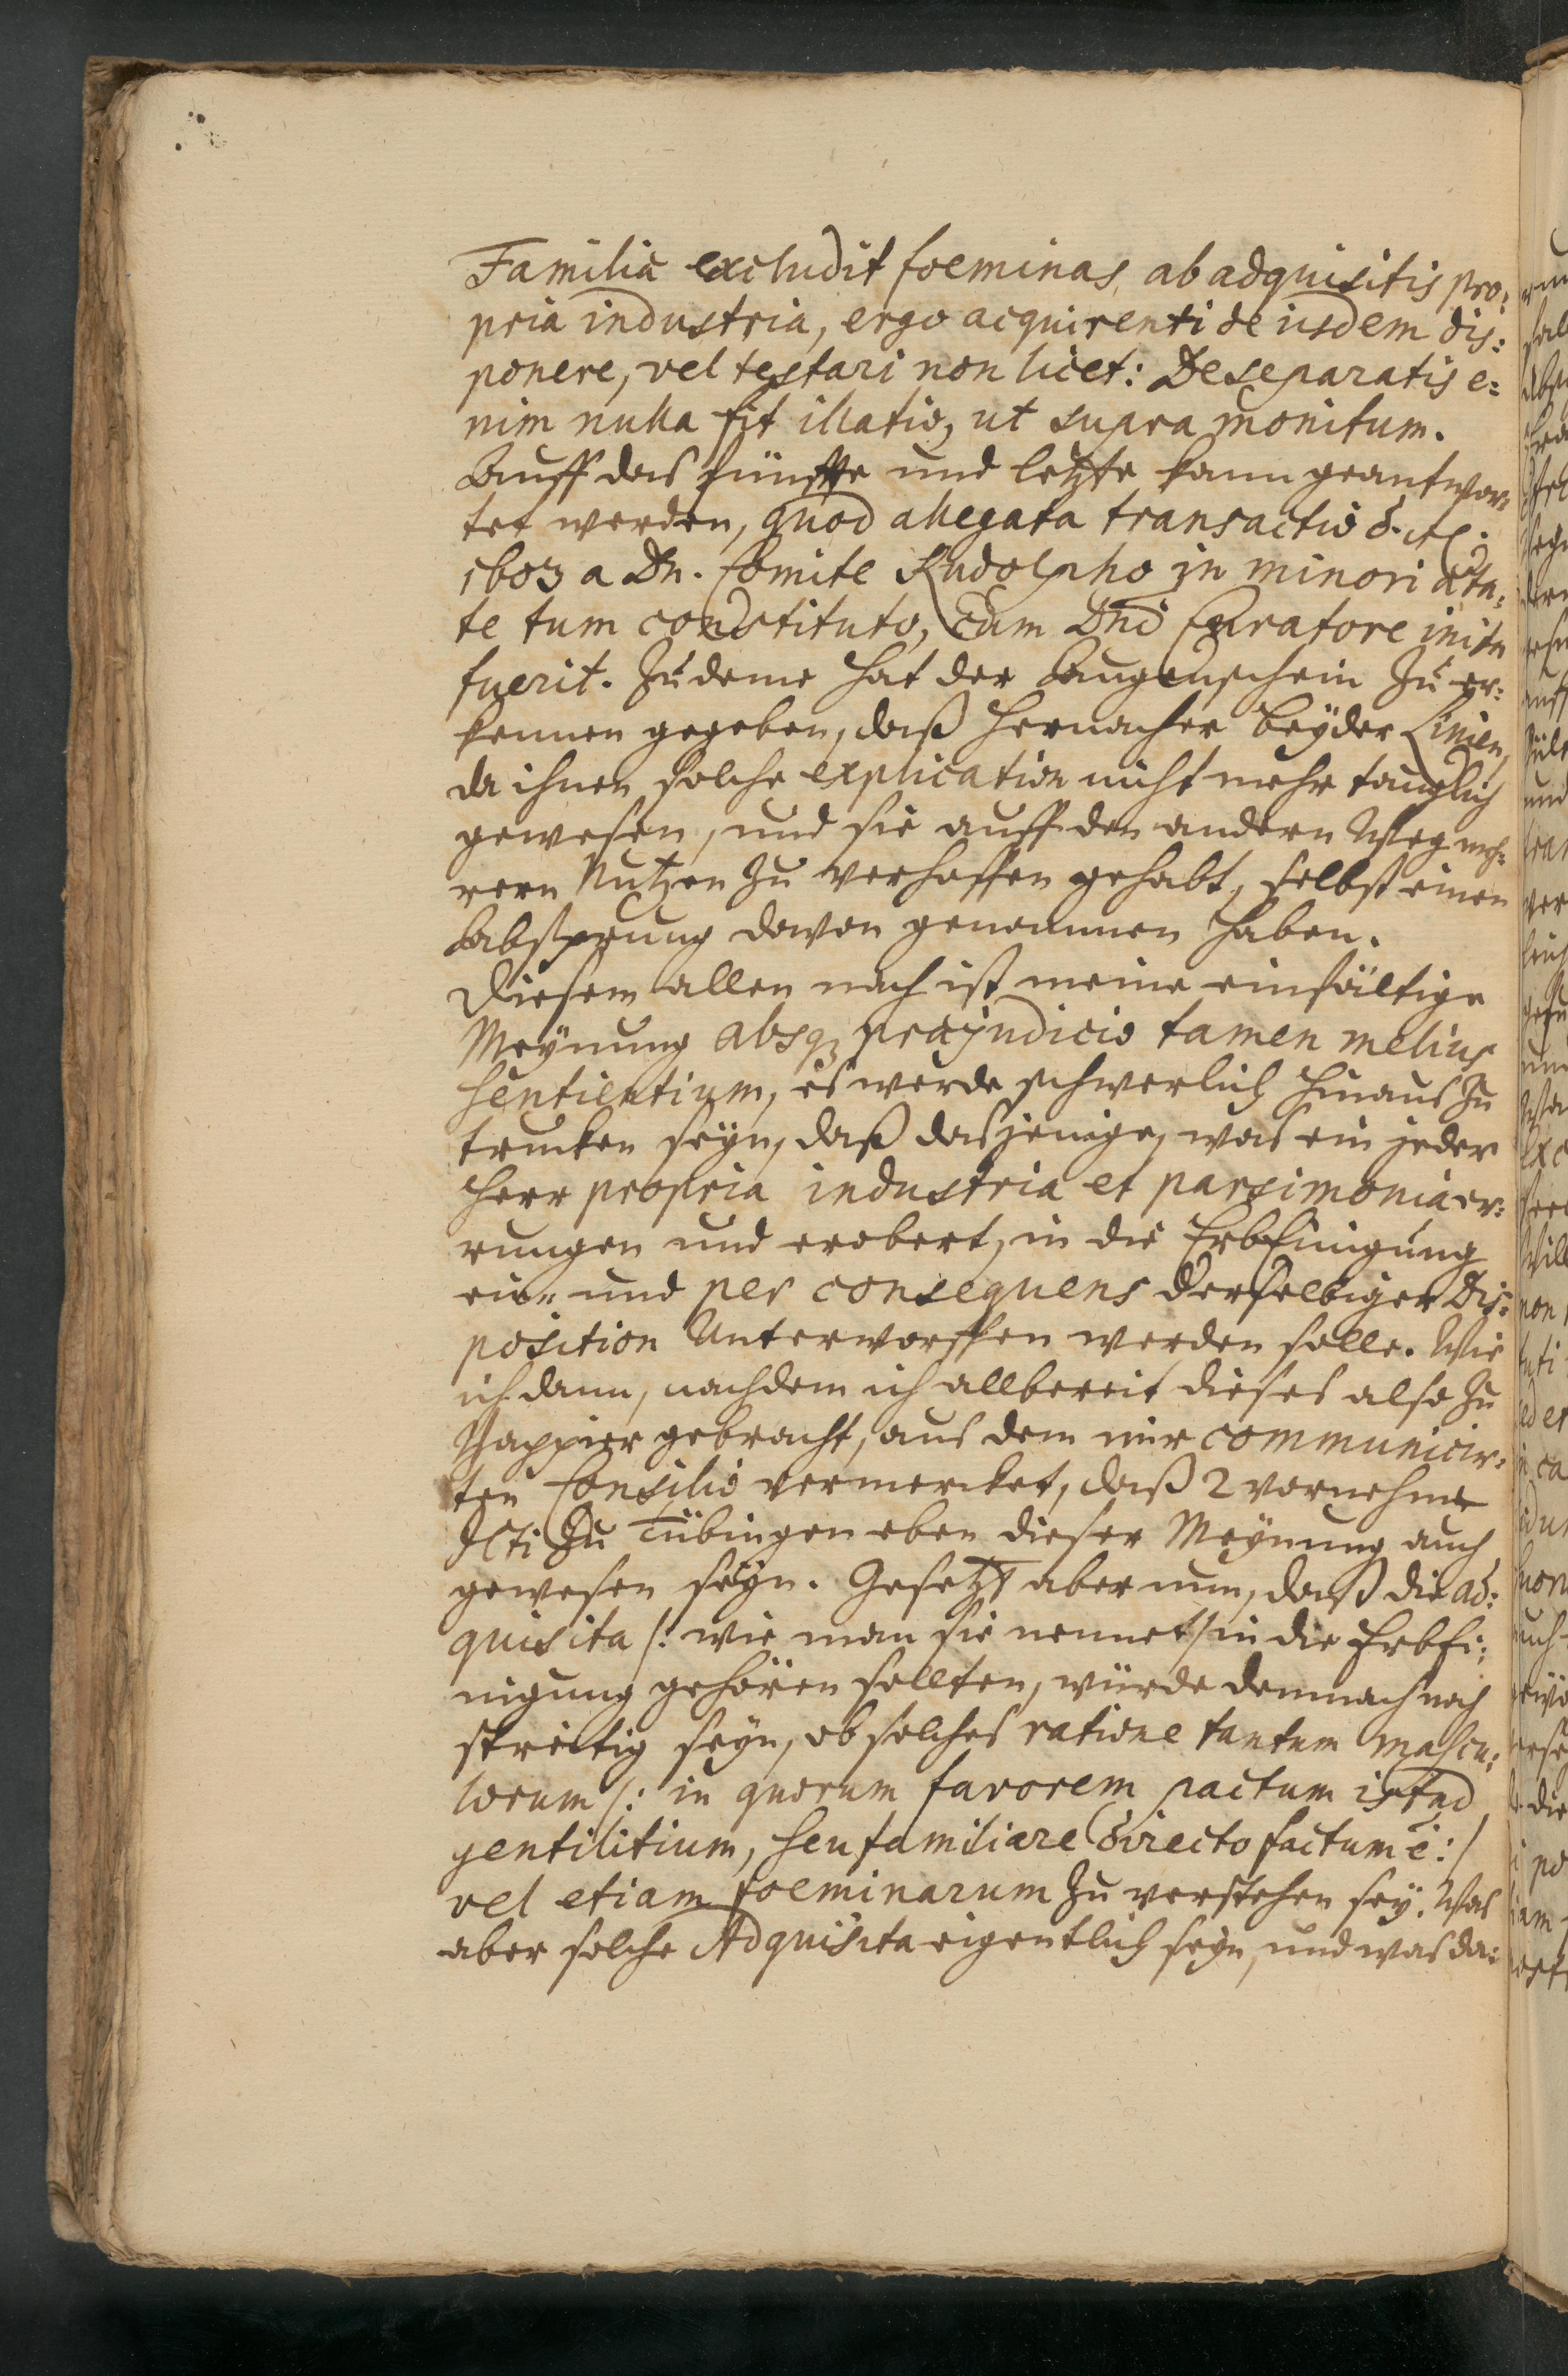 Familia excludit foeminas, ab adquisitis pro:
pria industria, ergo acquirenti de iisdem dis:
ponere, vel testari non licet: De separatis e:
nim nulla fit illatio, ut supra monitum.
Auff das fünffte und letzte kann geantwor,
tet werden, quod allegata transactio d. Ao.
1603 a Dn. Comite Rudolpho in minori æta:
te tum constituto, Cum Dni Curatore inita
fuerit. Zu deme hat der Augenschein zu er:
kennen gegeben, daß hernacher beyder Linien,
da ihnen solche explication nicht mehr tauglich
gewesen, und sie auff den andern Weg meh:
rern Nutzen zu verhoffen gehabt, selbst einen
Absprung davon genommen haben.
Diesem allen nach ist meine einfältige
Meynung absq; præjudicio tamen melius
sentientium, es werde schwerlich hinaus zu
trucken seyn, daß dasjenige, was ein jeder
Herr propria industria et parsimonia er:
rungen und erobert, in die Erb Einigung
ein- und per consequens derselbigen Dis:
position Unterworffen werden solle. Wie
ich dann, nachdem ich allbereit dieses also zu
Pappier gebracht, aus dem mir communicir:
ten Consilio vermercket, daß 2 vornehme
JCti zu Tübingen eben dieser Meynung auch
gewesen seyn. Gesetzt aber nun, daß die ad:
quisita /: wie man sie nennet / in die Erb Ei:
nigung gehören sollten, würde demnach noch
streitig seyn, ob solches ratione tantum mascu:
lorum /: in quorum favorem pactum istud
gentilitium, seu familiare directo factum ē :/
vel etiam foeminarum zu verstehen sey. Was
aber solche Adquisita eigentlich seyn, und was da: